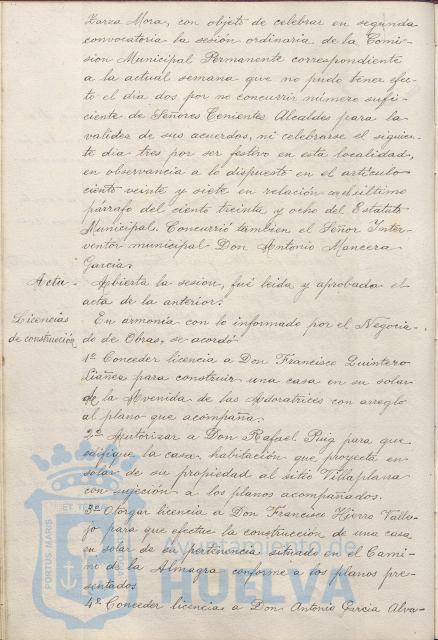 Larea Mora, con objeto de celebrar en segunda
convocatoria la sesión ordinaria de la Comi-
sion Municipal Permanente correspondiente
a la actual semana que no pudo tener efec-
to el dia dos por no concurrir número sufi-
ciente de Señores Tenientes Alcaldes para la
validez de sus acuerdos, ni celebrarse el siguien-
te dia tres por ser festivo en esta localidad,
en observancia a lo dispuesto en el articulo
ciento veinte y siete en relación con el último
párrafo del ciento treinta y ocho del Estatuto
Municipal. Concurrió tambien el Señor Inter-
ventor municipal Don Antonio Mancera
Garcia.
Acta.- Abierta la sesión, fué leida y aprobada el
acta de la anterior.
Licencias de construcción
En armonía con lo informado por el Negocia-
do de Obras, se acordó
1º Conceder licencia a Don Francisco Quintero
Liáñez para construir una casa en su solar
de la Avenida de las Adoratrices con arreglo
al plano que acompaña.
2º Autorizar a Don Rafael Puig para que
edifique la casa habitación que proyecta en
solar de su propiedad al sitio Villaplana
con sujeción a los planos acompañados.
3º Otorgar licencia a Don Francisco Hierro Valle-
jo para que efectue la construcción de una casa
en solar de su pertenencia situado en el Cami-
no de la Almagra conforme a los planos pre-
sentados
4º Conceder licencia a Don Antonio Garcia Alva-
PORTUS MARIS ET TER
Ayuntamiento de
HUELVA